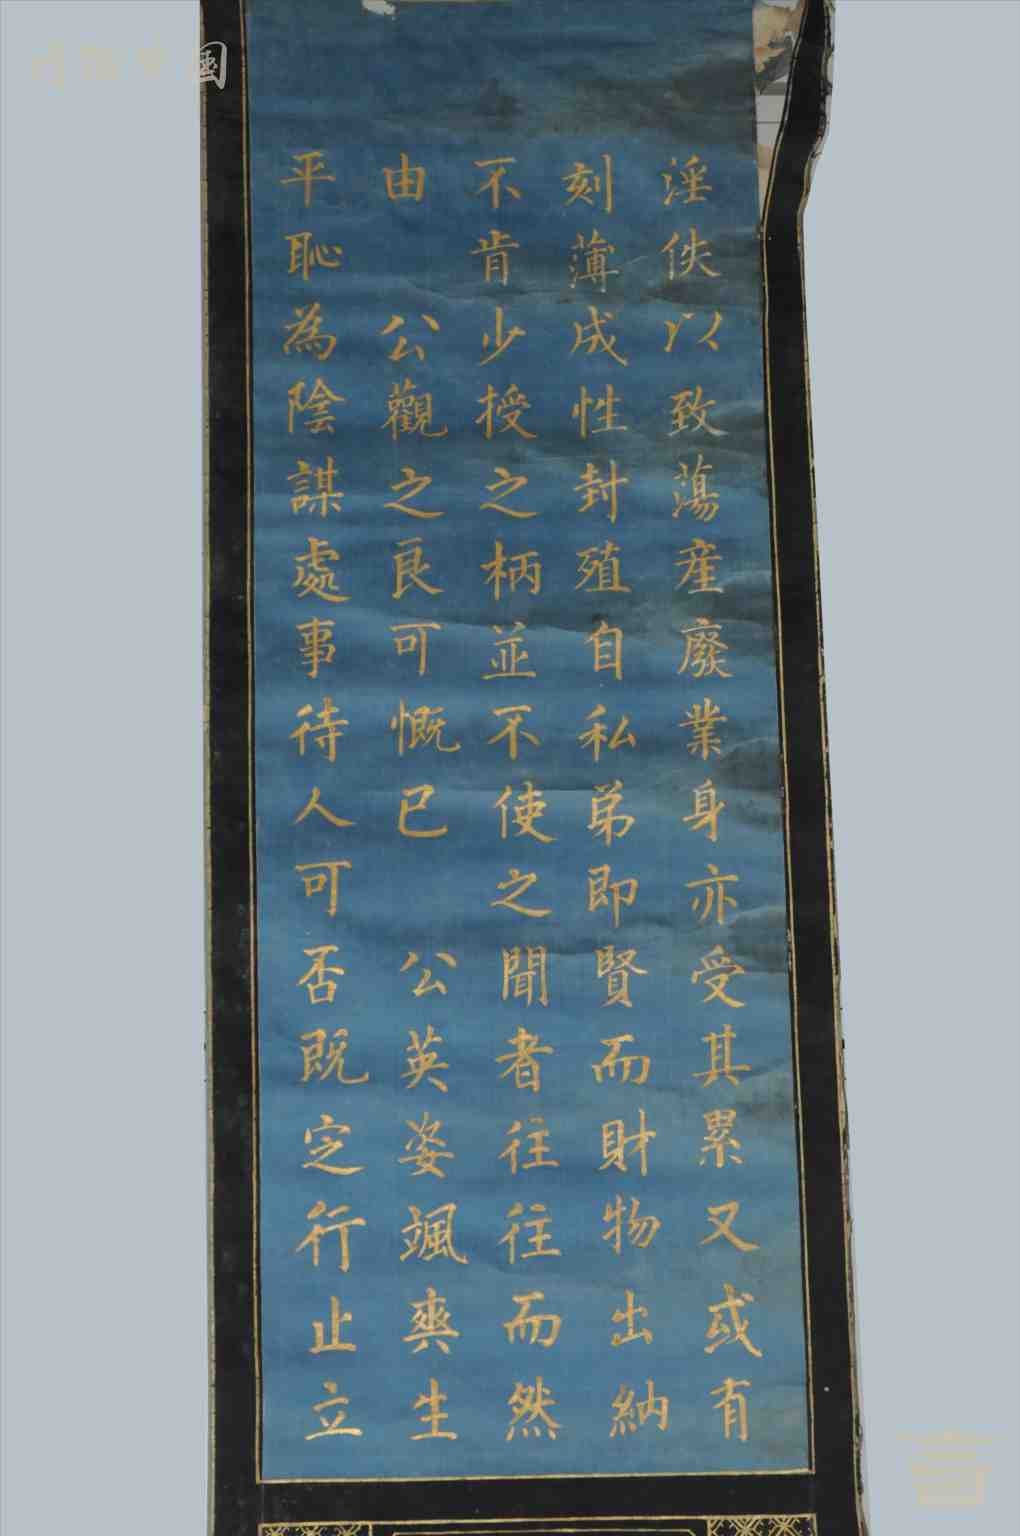 淫佚以致蕩產廢業身亦受其累又或有
刻薄成性封殖自私弟即賢而財物出納
不肯少授之柄並不使之聞者往往而然
由 公觀之良可慨已 公英姿颯爽生
平恥為陰謀處事待人可否既定行止立